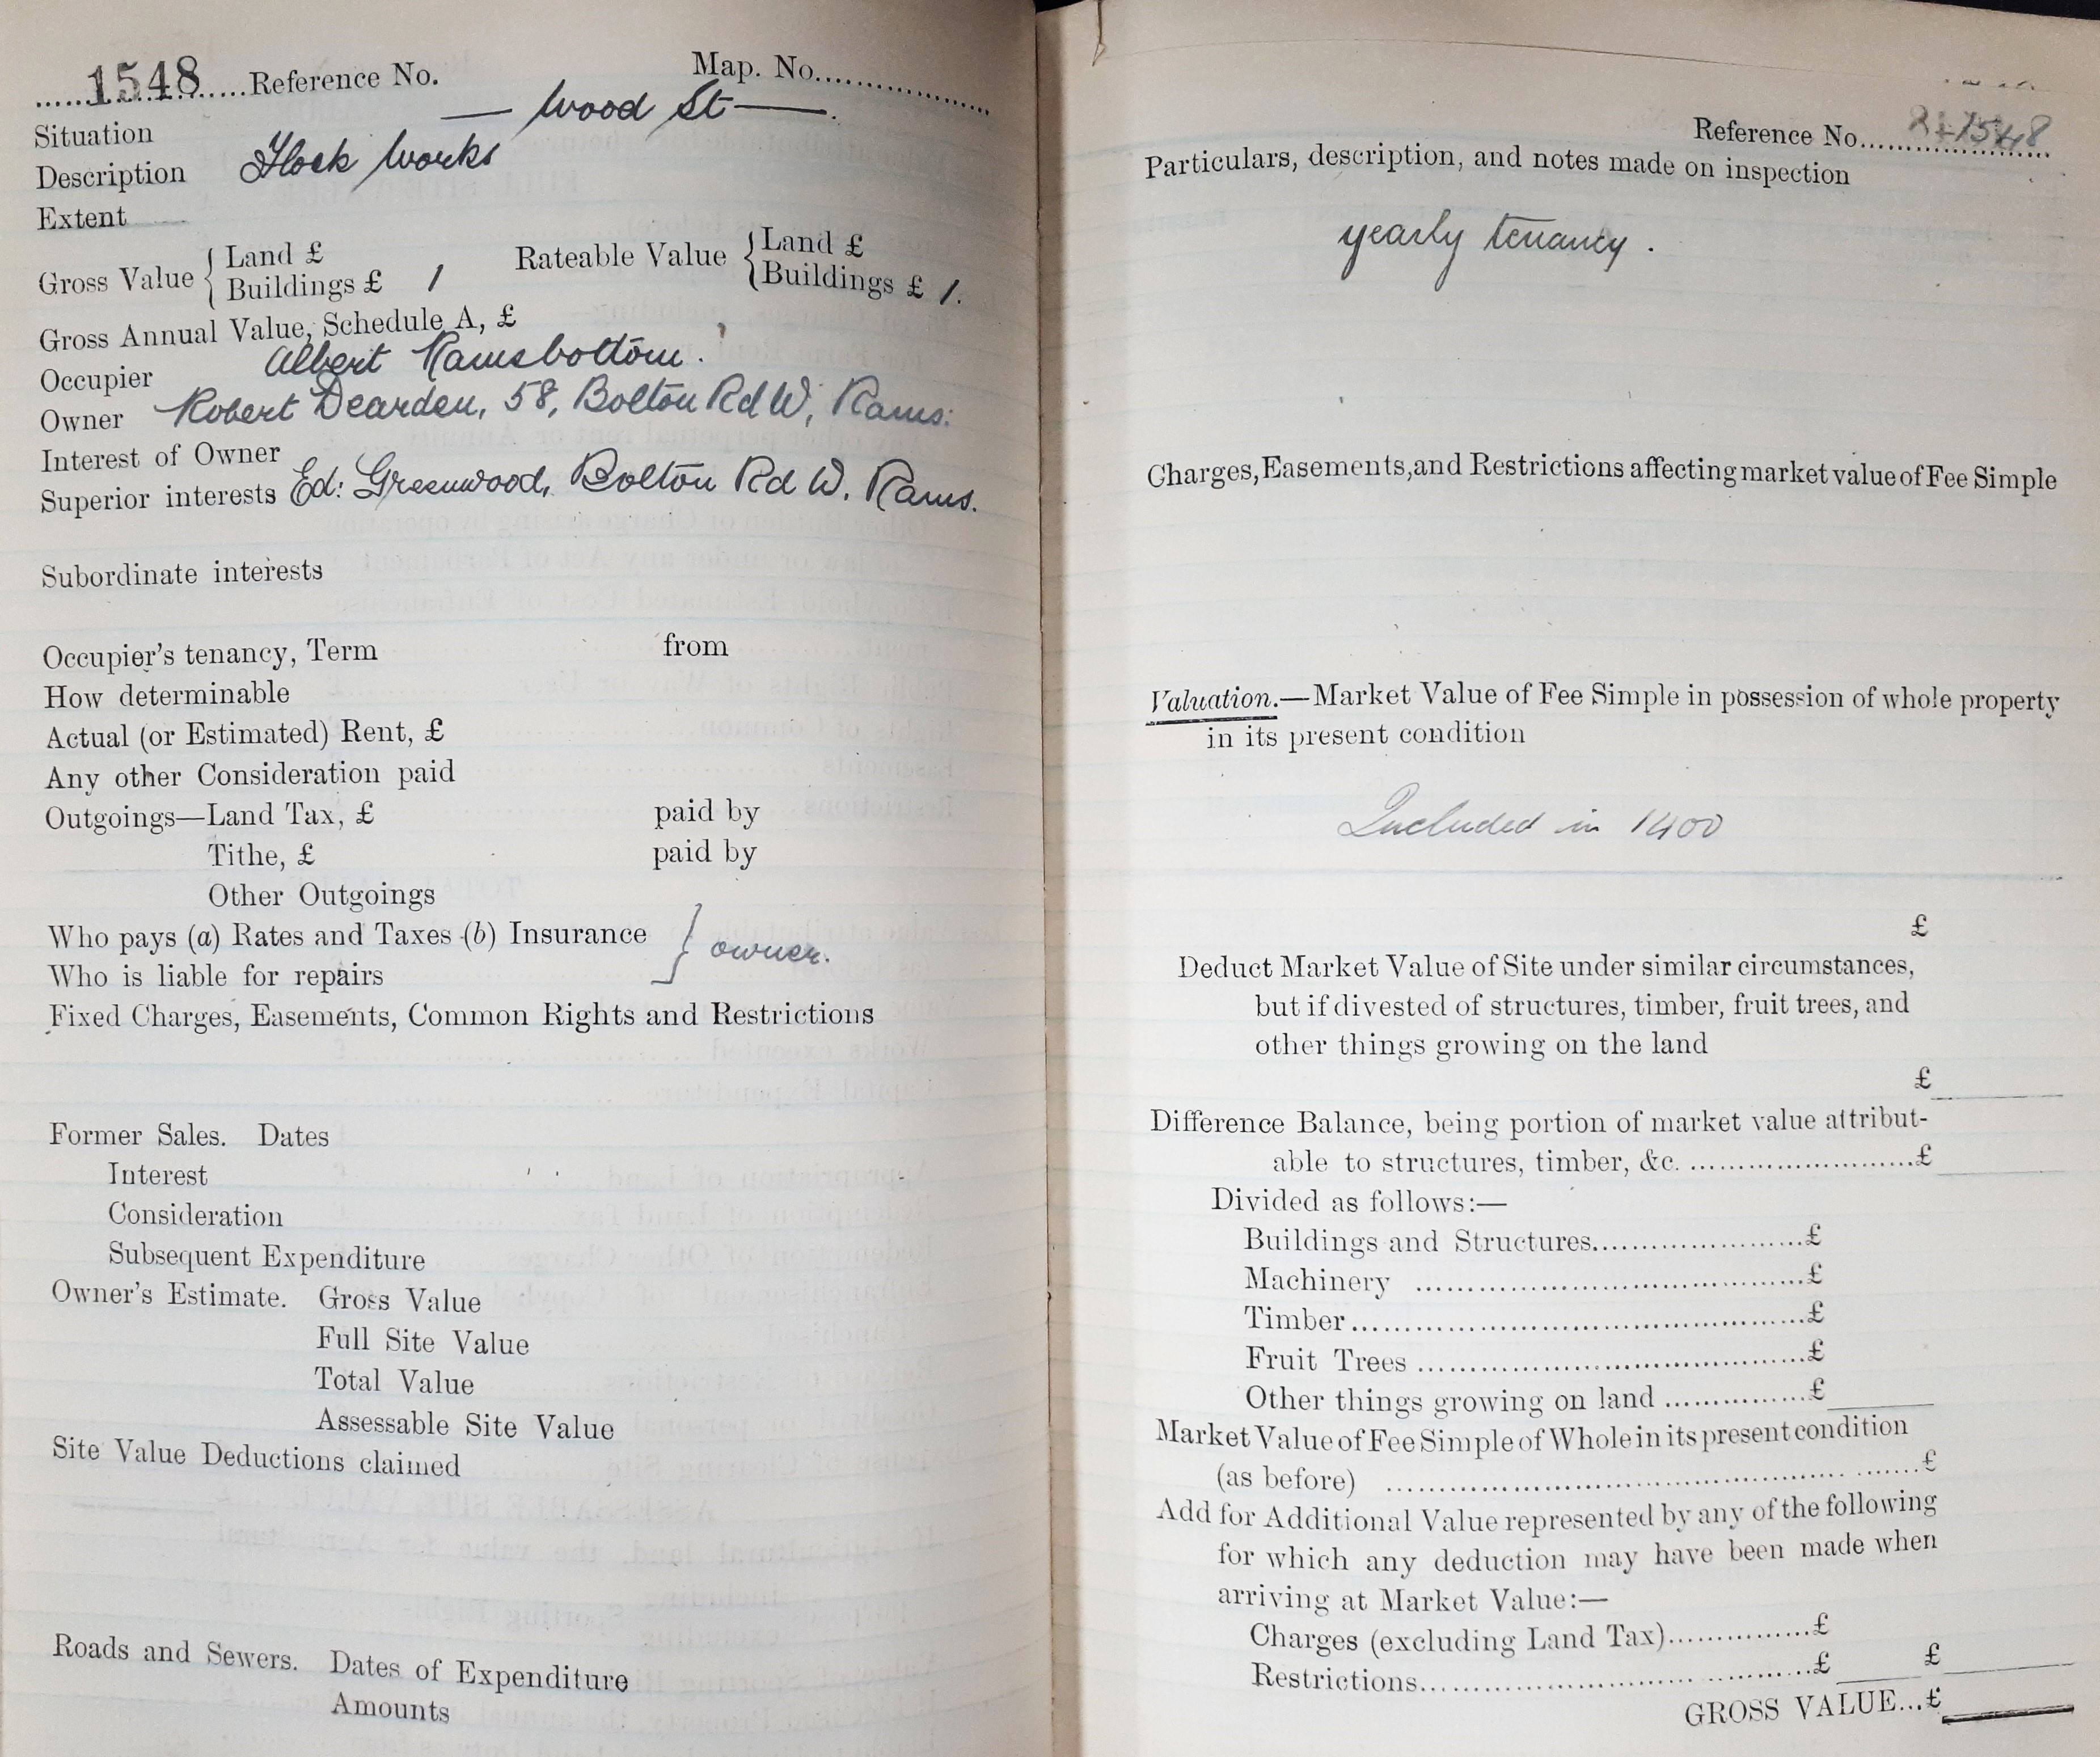 1548 Reference No. Map. No.
Situation — Wood St —
Description Flock Works
Extent
Gross Value { Land £ Rateable Value { Land £
Buildings £ 1 Buildings £ 1.
Gross Annual Value, Schedule A, £
Occupier Albert Ramsbottom.
Owner Robert Dearden, 58, Bolton Rd W, Rams:
Interest of Owner
Superior interests Ed: Greenwood, Bolton Rd W. Rams.
Subordinate interests
Occupier's tenancy, Term from
How determinable
Actual (or Estimated) Rent, £
Any other Consideration paid
Outgoings—Land Tax, £ paid by
Tithe, £ paid by
Other Outgoings
Who pays (a) Rates and Taxes (b) Insurance } owner.
Who is liable for repairs
Fixed Charges, Easements, Common Rights and Restrictions
Former Sales. Dates
Interest
Consideration
Subsequent Expenditure
Owner's Estimate. Gross Value
Full Site Value
Total Value
Assessable Site Value
Site Value Deductions claimed
Roads and Sewers. Dates of Expenditure
Amounts
Reference No. 1548
Particulars, description, and notes made on inspection
yearly tenancy.
Charges, Easements, and Restrictions affecting market value of Fee Simple
Valuation.—Market Value of Fee Simple in possession of whole property
in its present condition
Included in 1400
£
Deduct Market Value of Site under similar circumstances,
but if divested of structures, timber, fruit trees, and
other things growing on the land
£
Difference Balance, being portion of market value attribut-
able to structures, timber, &c. £
Divided as follows:—
Buildings and Structures £
Machinery £
Timber £
Fruit Trees £
Other things growing on land £
Market Value of Fee Simple of Whole in its present condition
(as before) £
Add for Additional Value represented by any of the following
for which any deduction may have been made when
arriving at Market Value:—
Charges (excluding Land Tax) £
Restrictions £ £
GROSS VALUE... £